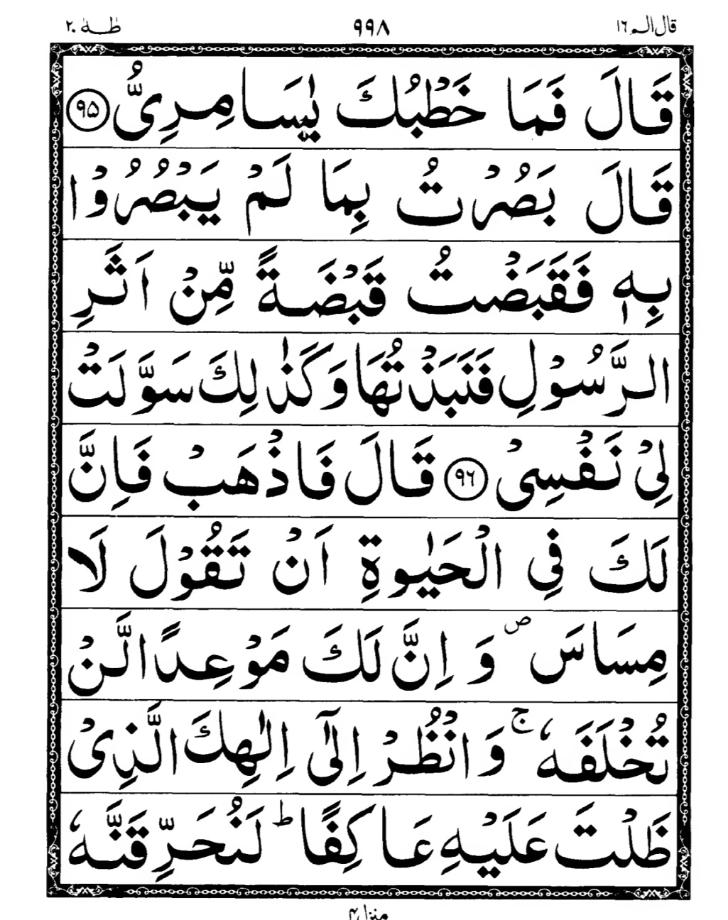 قال الم ١٦ ٩٩٨ طٰهٰ ٢٠
قَالَ فَمَا خَطْبُكَ يٰسَامِرِىُّ ﴿۹۵﴾
قَالَ بَصُرْتُ بِمَا لَمْ يَبْصُرُوْا
بِهٖ فَقَبَضْتُ قَبْضَةً مِّنْ اَثَرِ
الرَّسُوْلِ فَنَبَذْتُهَا وَكَذٰلِكَ سَوَّلَتْ
لِىْ نَفْسِىْ ﴿۹۶﴾ قَالَ فَاذْهَبْ فَاِنَّ
لَكَ فِى الْحَيٰوةِ اَنْ تَقُوْلَ لَا
مِسَاسَ ۖ وَ اِنَّ لَكَ مَوْعِدًا لَّنْ
تُخْلَفَهٗ ۚ وَانْظُرْ اِلٰٓى اِلٰهِكَ الَّذِىْ
ظَلْتَ عَلَيْهِ عَاكِفًا ؕ لَنُحَرِّقَنَّهٗ
منزل ۴